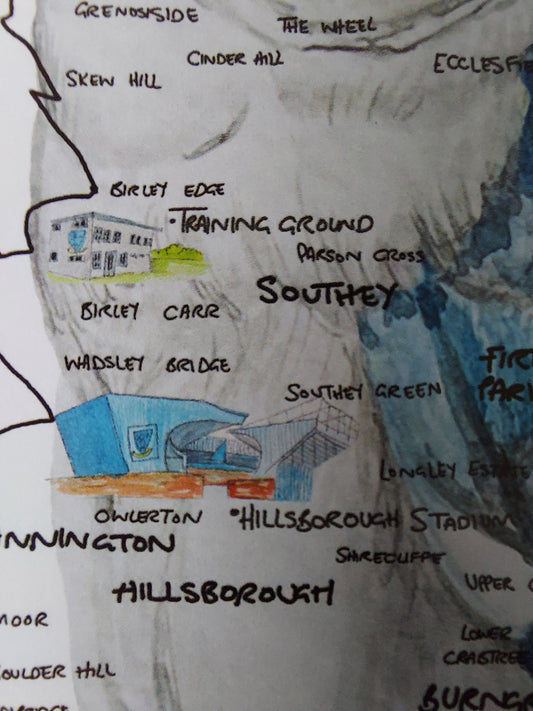 GRENOSIDE
THE WHEEL
CINDER HILL
SKEW HILL
ECCLESFIE
BIRLEY EDGE
•TRAINING GROUND
PARSON CROSS
SOUTHEY
BIRLEY CARR
WADSLEY BRIDGE
FIR
SOUTHEY GREEN
PAR
LONGLEY ESTATE
OWLERTON
•HILLSBOROUGH STADIUM
NNINGTON
SHIRECLIFFE
HILLSBOROUGH
UPPER
MOOR
LOWER
CRABTREE
OULDER HILL
BURNGR